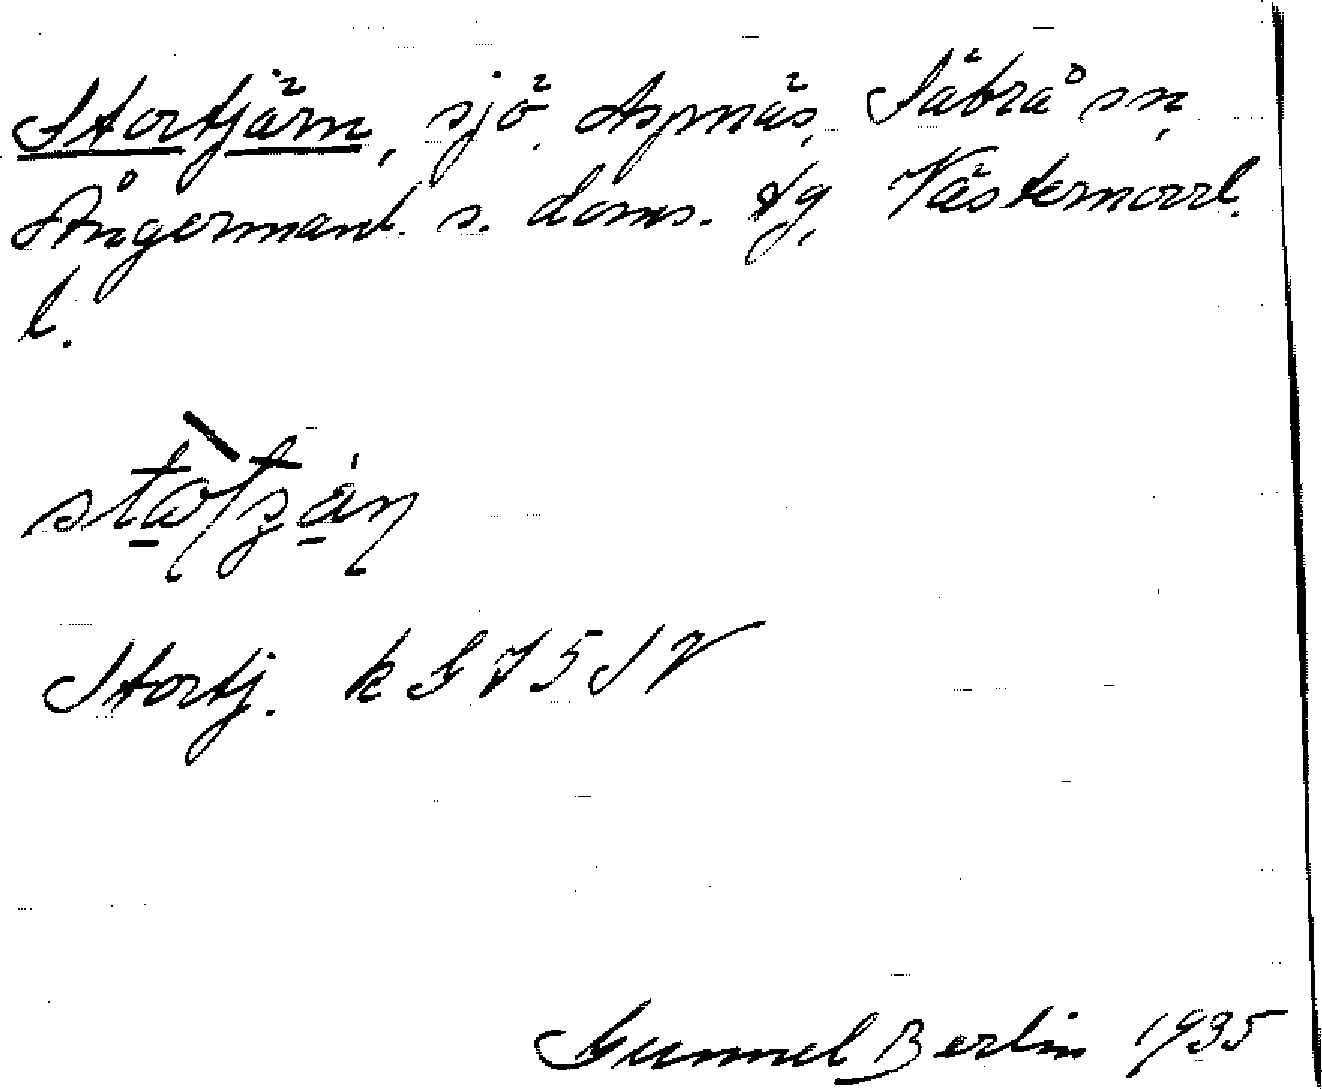 Stortjärn, sjö. Aspnäs, Säbrå sn,
Ångermanl. s. doms. tg, Västernorrl.
l.
Stortj. k G 75 SV
Gunnel Berlin 1935